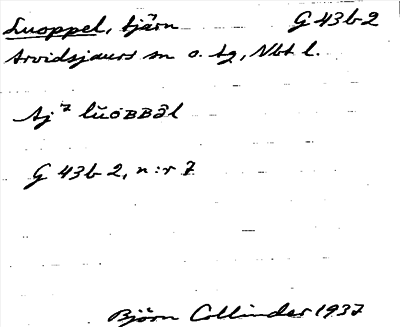 Luoppel, tjärn G 43 b 2
Arvidsjaurs sn o. tg, Nbt l.
tj ⁊ lŭoʙʙāl
G 43 b 2, n:r 7
Björn Collinder 1937